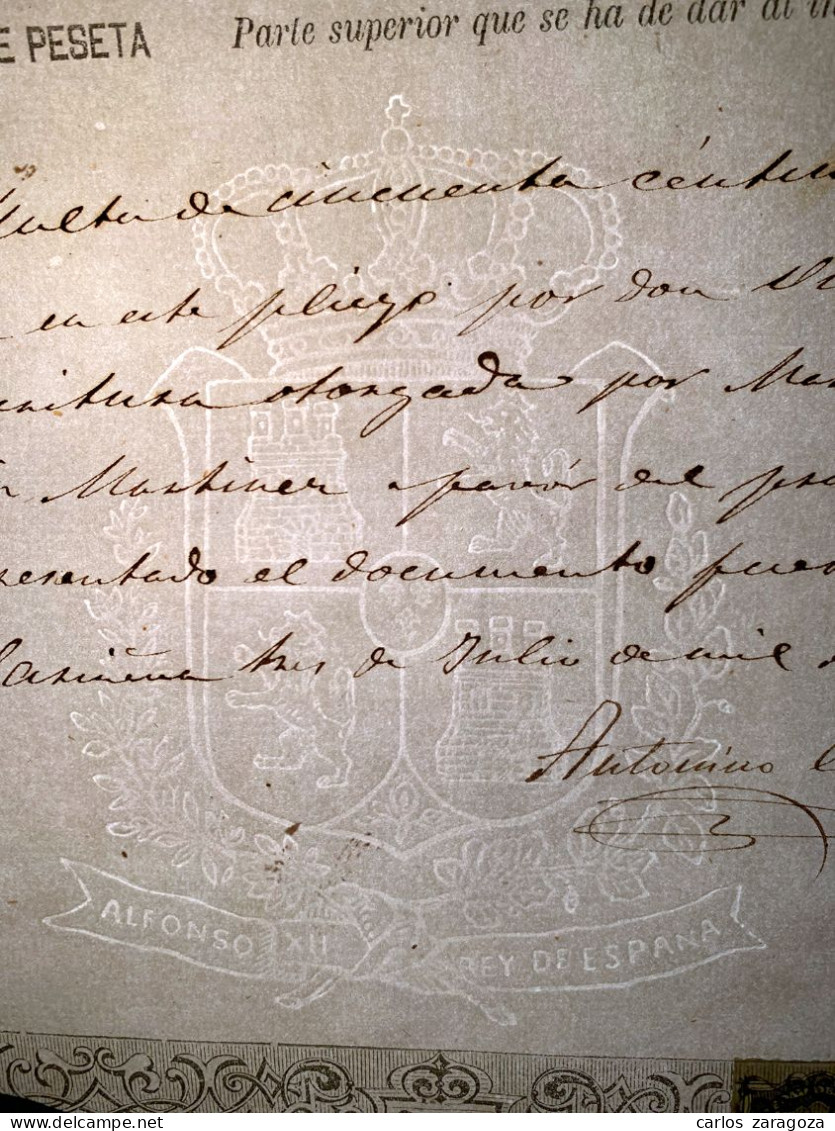 E PESETA
Parte superior que se ha de dar al in
ulta de cincuenta céntim
en este pliego por don
critura otorgada por Mar
Martinez a favór del pre
resentado el documento fuer
Cariñena tres de Julio de mil
Antonino
ALFONSO XII REY DE ESPAÑA
carlos zaragoza
delcampe.net